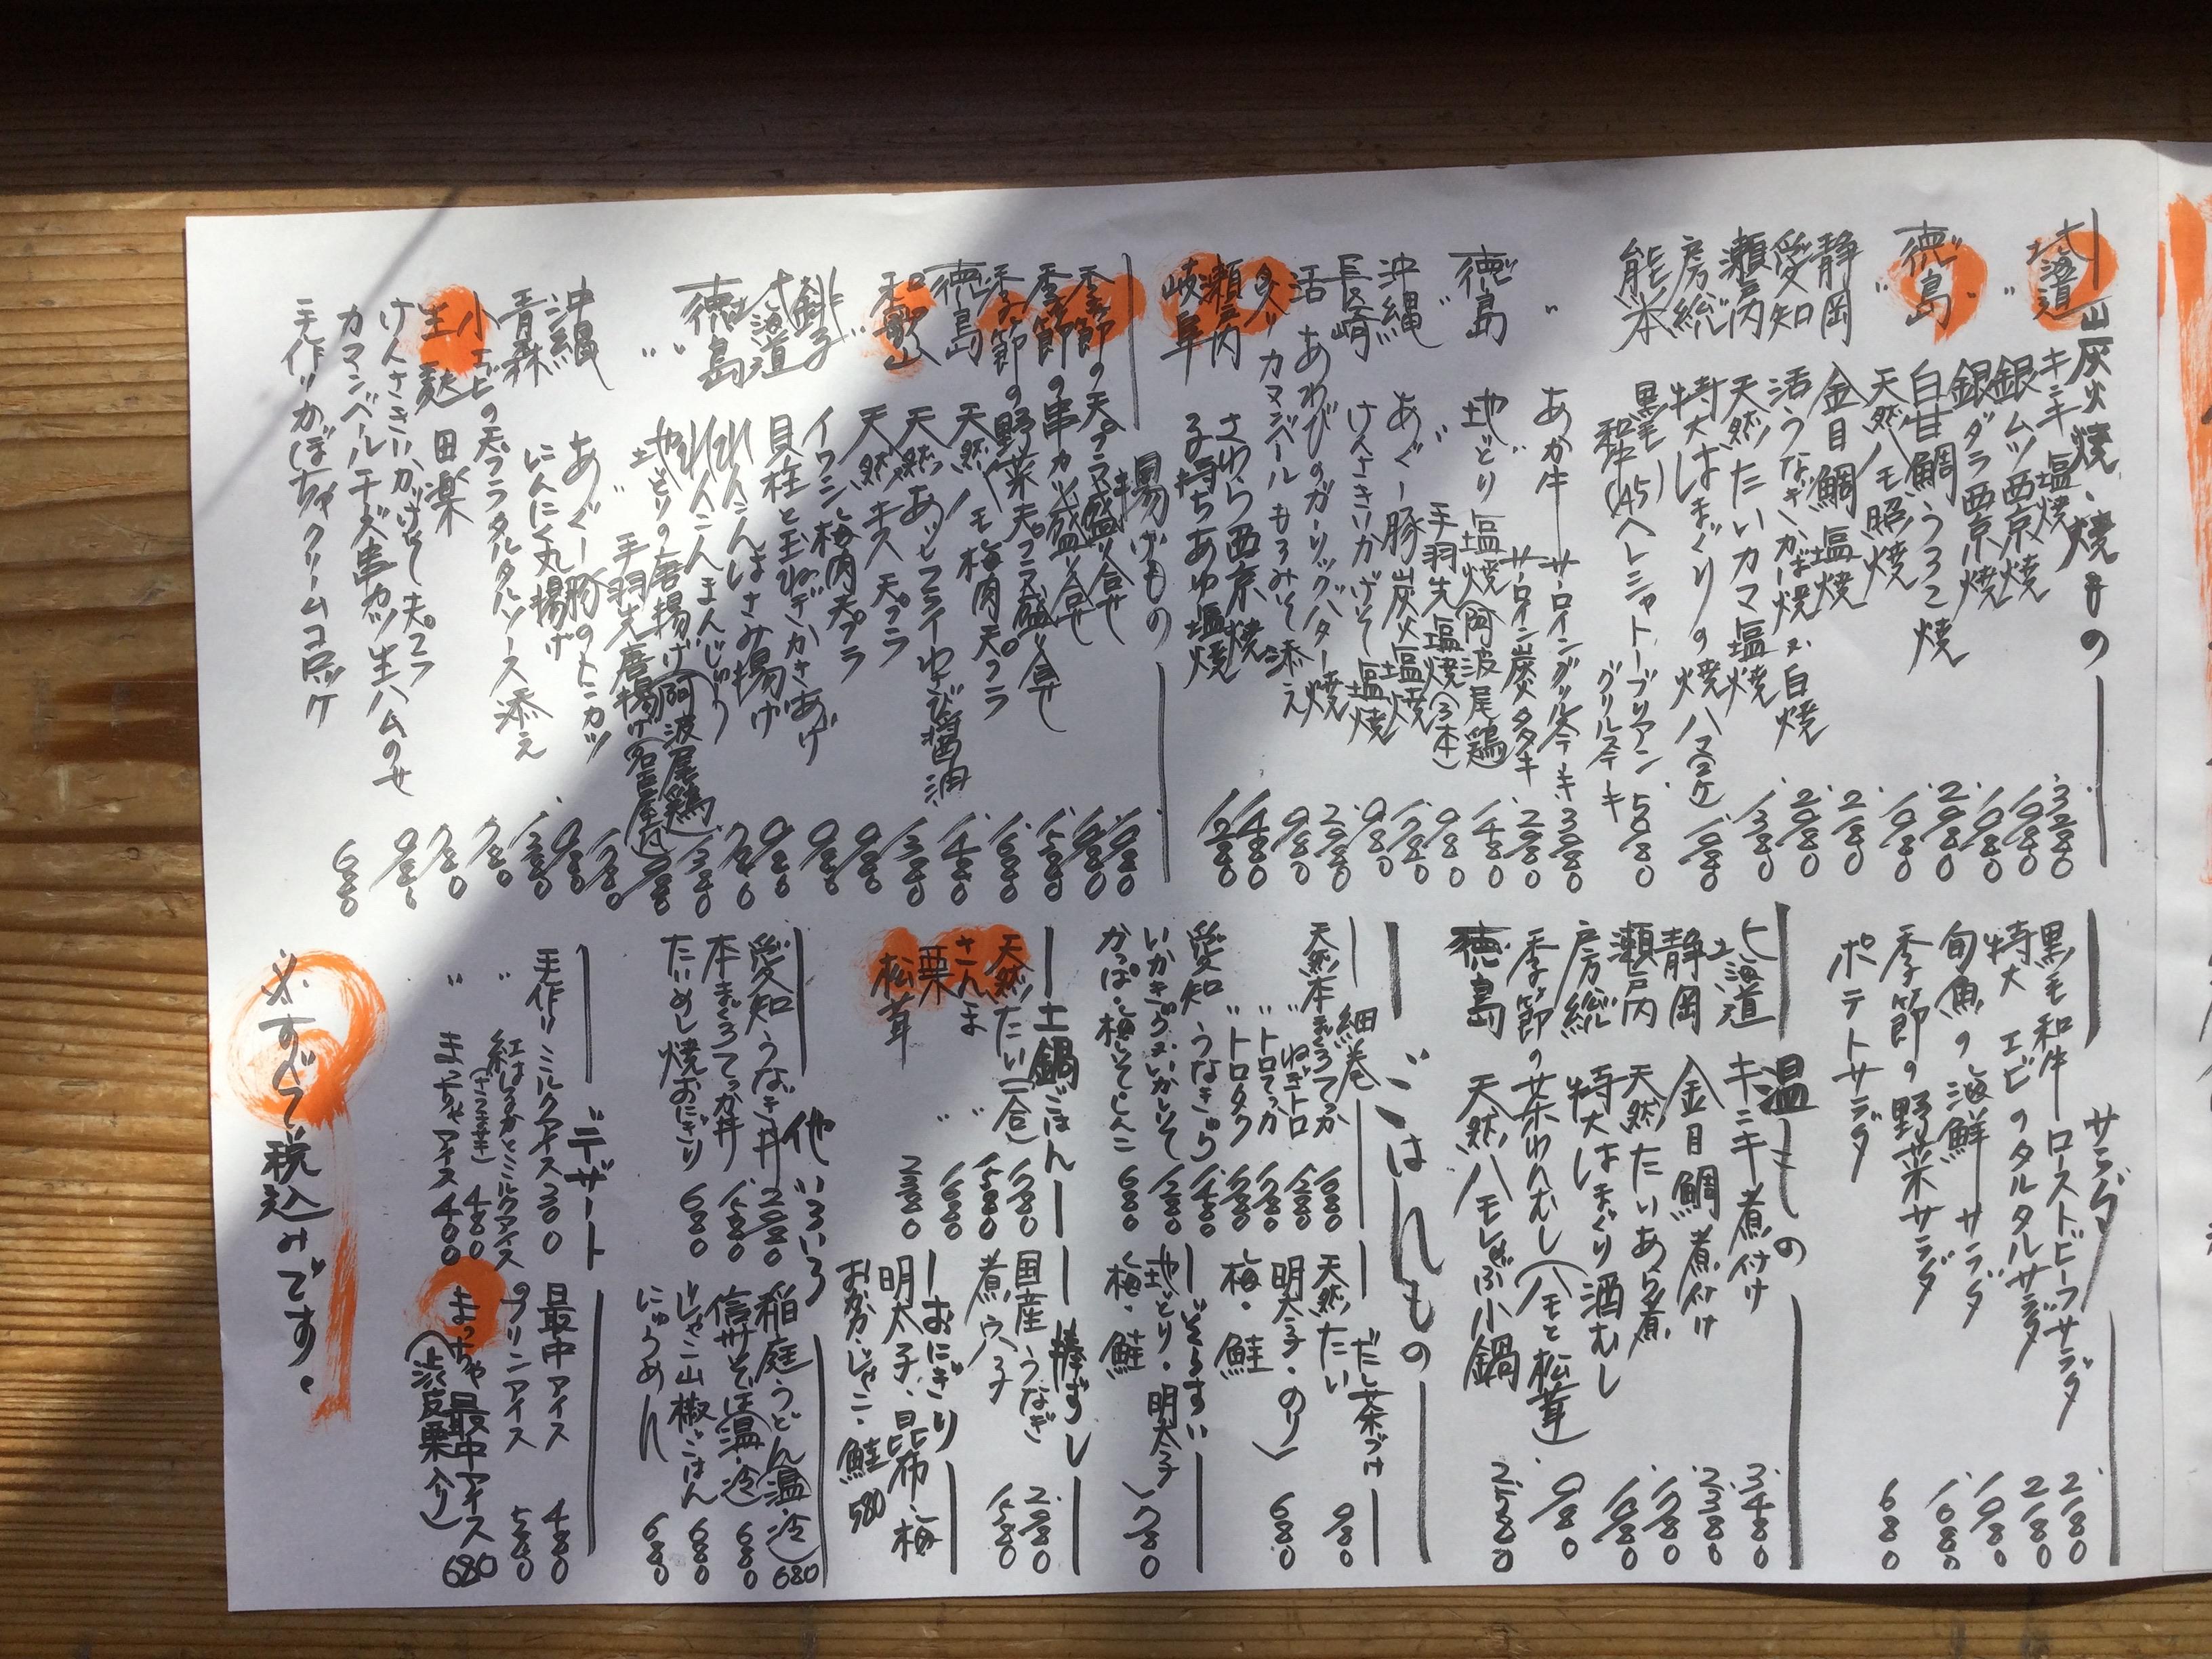 炭火焼、焼きもの
北海道 キンキ 塩焼 3280
〃 銀ムツ西京焼 1980
銀ダラ西京焼 1980
徳島 白甘鯛うろこ焼 2980
〃 天然ハモ照焼 1980
静岡 金目鯛塩焼 2180
愛知 活うなぎかば焼又は白焼 2980
瀬戸内 天然たいカマ塩焼 1380
房総 特大はまぐりの焼ハマ(2ケ) 1080
熊本 黒毛和牛(A5)ヘレシャトーブリアングリルステーキ 5080
〃 あか牛 サーロイングリルステーキ 3080
〃 サーロイン炭タタキ 2080
徳島 地どり塩焼(阿波尾鶏) 1480
〃 〃 手羽先塩焼(3本) 980
沖縄 あぐー豚炭火塩焼 1780
長崎 けんさきいかげそ塩焼 980
活あわびのガーリックバター焼 2980
カマンベールもろみそ添え 980
瀬戸内 さわら西京焼 1480
岐阜 子持ちあゆ塩焼 1280
揚げもの
季節の天プラ盛り合せ 1980
季節の串カツ盛り合せ 1980
季節の野菜天プラ盛り合せ 1580
徳島 天然ハモ梅肉天プラ 1680
〃 天然あじフライわさび醤油 1480
和歌山 天然キス天プラ 1380
銚子 イワシ梅肉天プラ 980
北海道 貝柱と玉ねぎかきあげ 980
徳島 れんこんはさみ揚げ 980
〃 れんこんまんじゅう 780
〃 地どりの唐揚げ(阿波尾鶏) 1380
〃 手羽先唐揚げ(名古屋風)
沖縄 あぐー豚のトンカツ
青森 にんにく丸揚げ
小エビの天プラタルタルソース添え
生麩田楽 780
けんさきいかげそ天プラ 780
カマンベールチーズ串カツ生ハムのせ 980
手作りかぼちゃクリームコロッケ 680
サラダ
黒毛和牛ローストビーフサラダ 2180
特大エビのタルタルサラダ 2180
旬魚の海鮮サラダ 1980
季節の野菜サラダ 1080
ポテトサラダ 680
温もの
北海道 キンキ煮付け 3480
静岡 金目鯛煮付け 2380
瀬戸内 天然たいあら煮 1780
房総 特大はまぐり酒むし 1080
季節の茶わんむし(ハモと松茸) 980
徳島 天然ハモしゃぶ小鍋 2580
ごはんもの
細巻
天然本まぐろてっか 1680
〃 ねぎトロ 1280
〃 トロてっか 1780
〃 トロタク 1580
愛知 うなきゅう 1480
いかきゅう又はいかしそ 1280
かっぱ・梅しそ・しんこ 680
だし茶づけ
天然たい 980
明太子・のり 680
梅・鮭
ぞうすい
地どり・明太子 780
梅・鮭
土鍋ごはん
天然たい(一合) 1780
さんま 〃 1580
栗 〃 1680
松茸 2380
棒ずし
国産うなぎ 2980
煮穴子 1580
おにぎり
明太子、昆布、梅
おかか・じゃこ・鮭 580
他いろいろ
愛知 うなぎ丼 2980
本まぐろてっか丼 1580
たいめし焼おにぎり 680
稲庭うどん(温・冷) 680
信州そば(温・冷) 680
じゃこ山椒ごはん 680
にゅうめん 680
デザート
手作り ミルクアイス 300
〃 紅はるかとミルクアイス 480
(さつまいも)
〃 まっちゃアイス 400
最中アイス 480
プリンアイス 580
まっちゃ最中アイス 680
(渋皮栗入り)
※すべて税込みです。